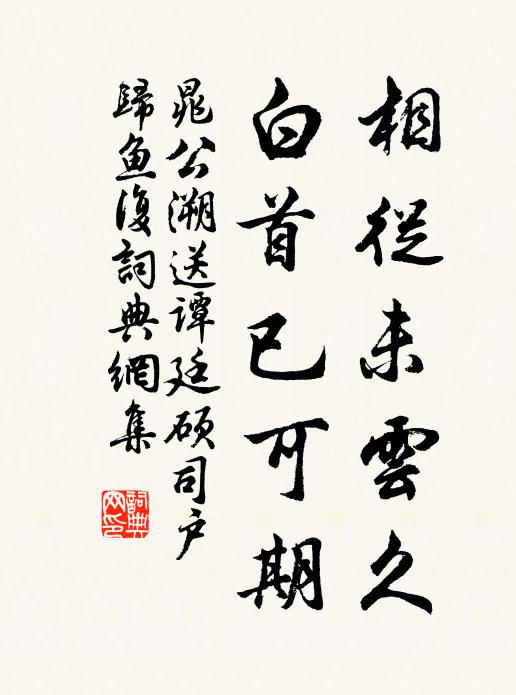 相從未雲久
白首已可期
晁公溯送譚廷碩司户
歸魚復詞典網集
詞典网印